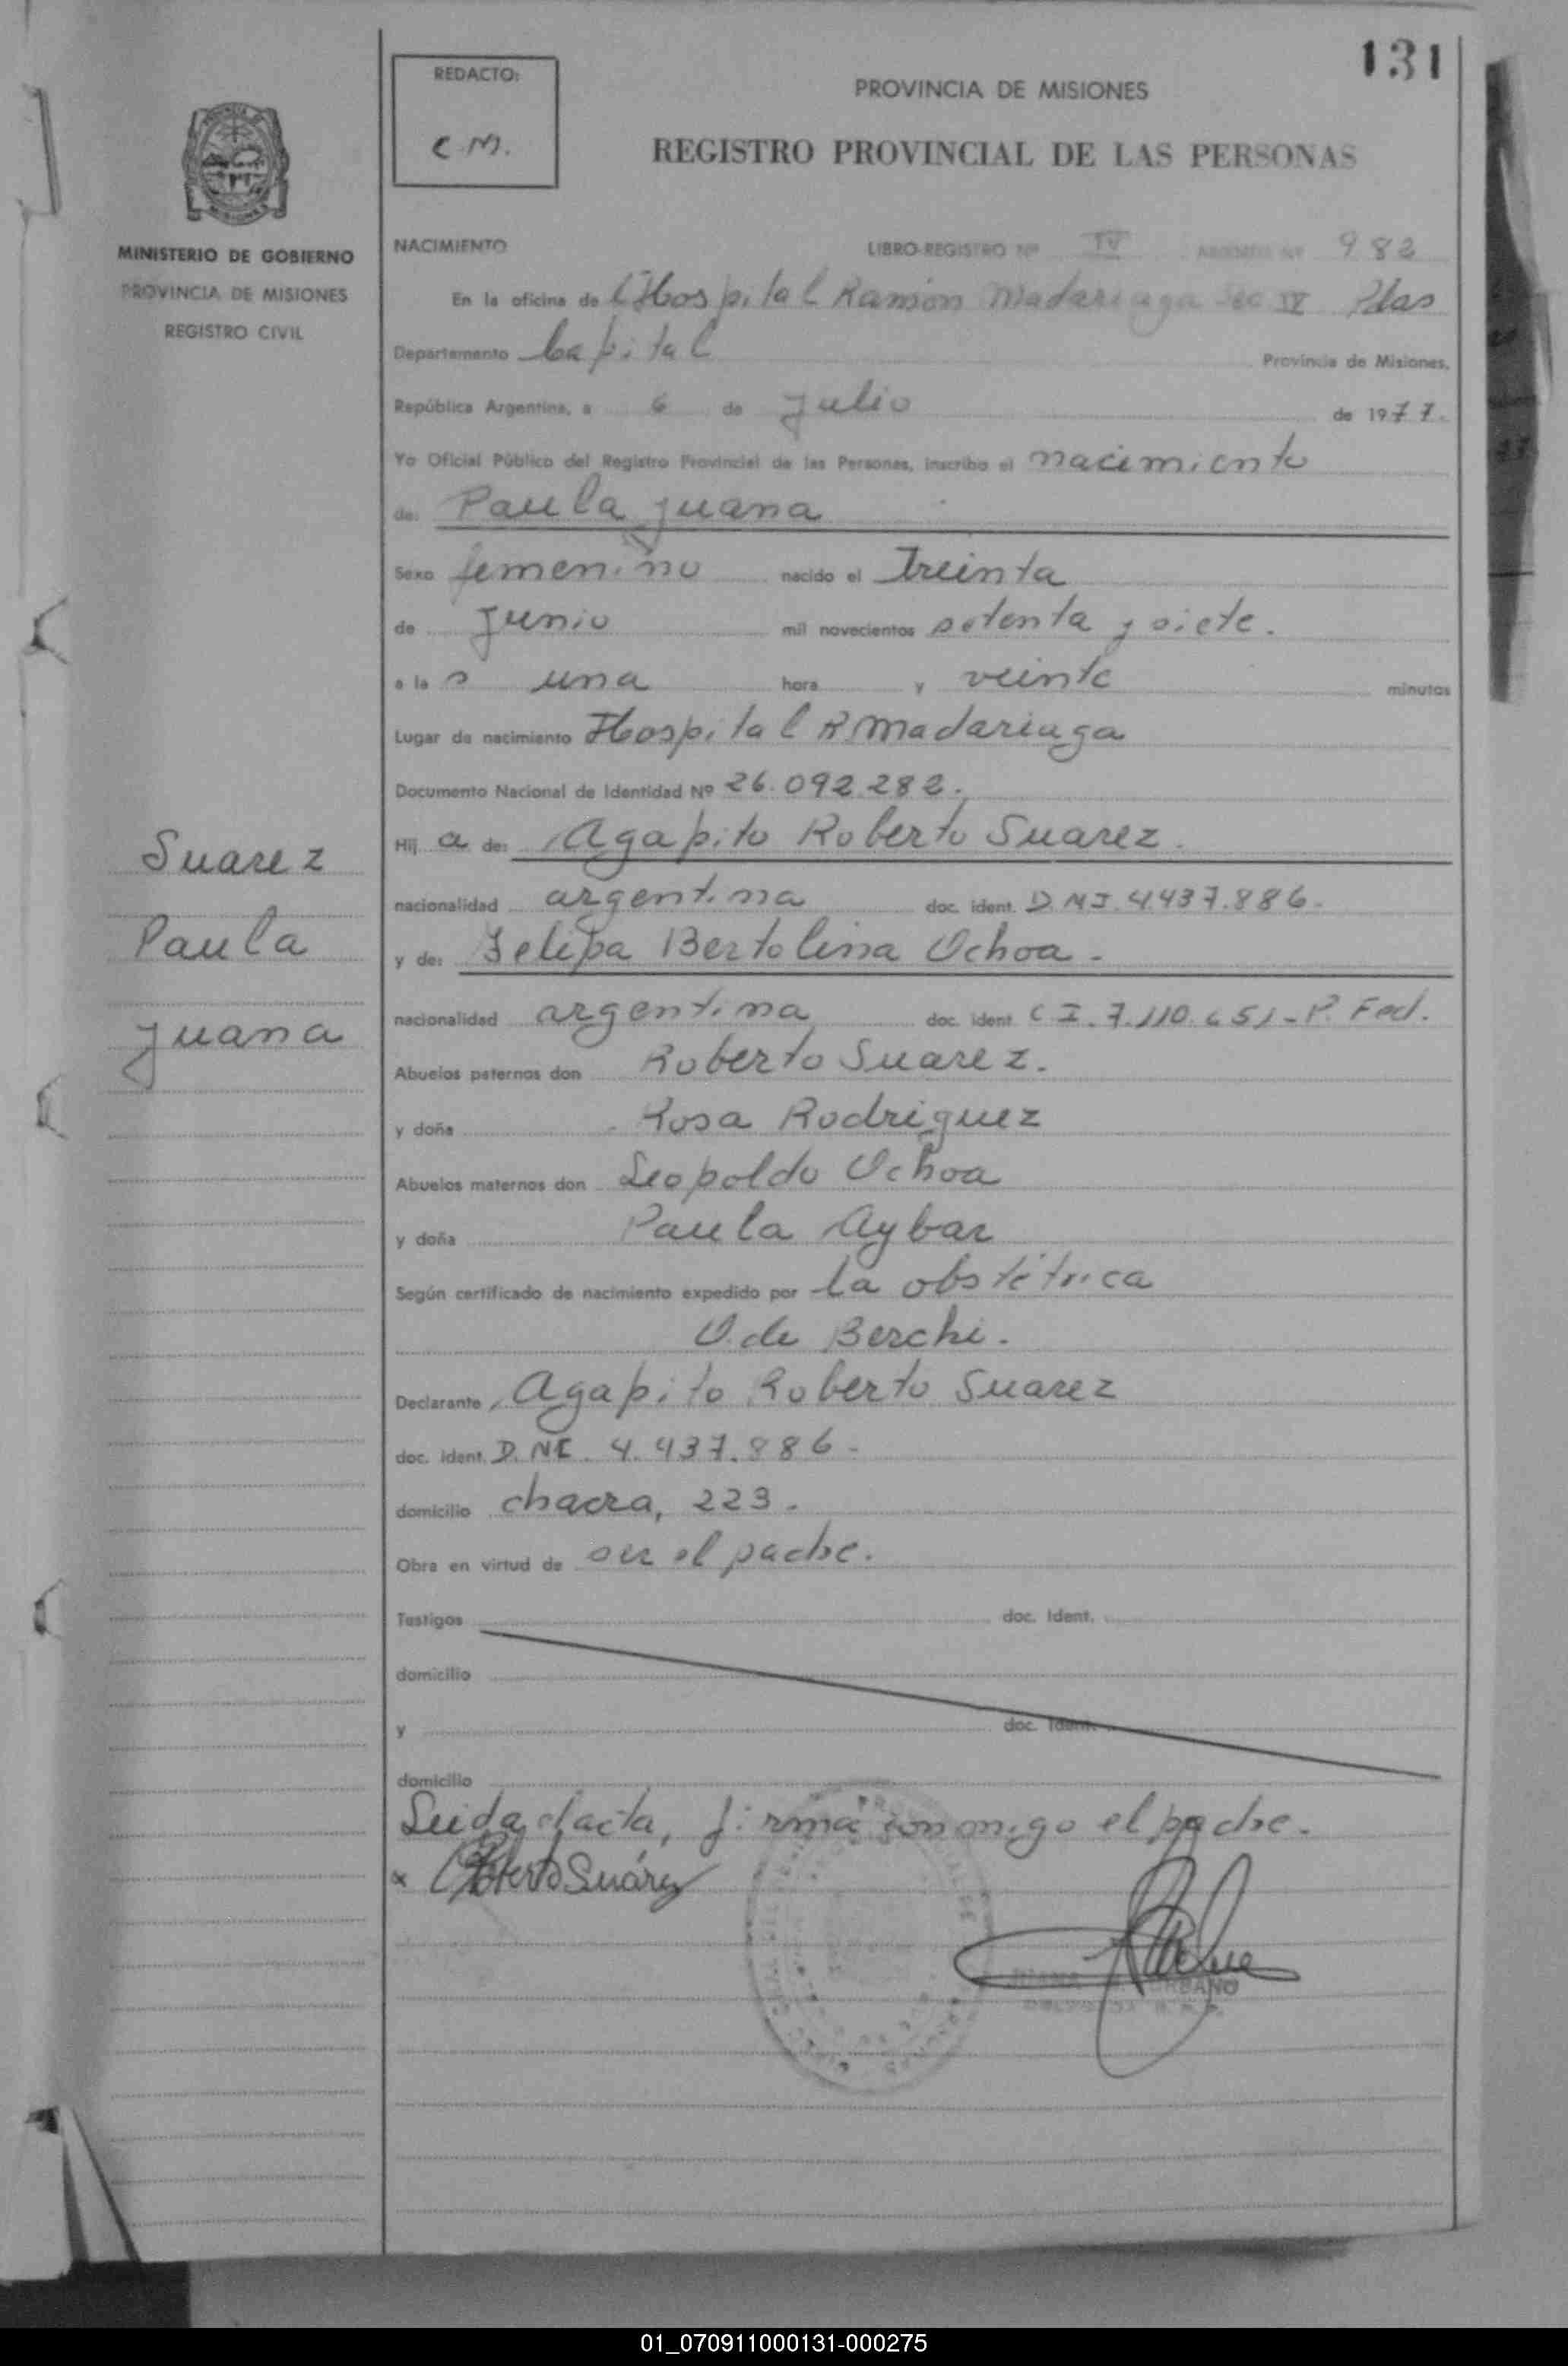 131
REDACTO:
C.M.
PROVINCIA DE MISIONES
REGISTRO PROVINCIAL DE LAS PERSONAS
MINISTERIO DE GOBIERNO
PROVINCIA DE MISIONES
REGISTRO CIVIL
NACIMIENTO LIBRO-REGISTRO Nº IV ASIENTO Nº 982
En la oficina de Hospital Ramón Madariaga Sec IV Pdas
Departamento Capital Provincia de Misiones,
República Argentina, a 6 de Julio de 1977.
Yo Oficial Público del Registro Provincial de las Personas, inscribo el nacimiento
de: Paula Juana
Sexo femenino nacido el Treinta
de Junio mil novecientos setenta y siete.
a la s una hora y veinte minutos
Lugar de nacimiento Hospital R. Madariaga
Documento Nacional de Identidad Nº 26.092.282.
Hij a de: Agapito Roberto Suarez.
nacionalidad argentina doc. ident. D.N.I. 4.437.886.
y de: Felipa Bertolina Ochoa.
nacionalidad argentina doc. ident. C.I. 7.110.651-P. Fed.
Abuelos paternos don Roberto Suarez.
y doña Rosa Rodriguez
Abuelos maternos don Leopoldo Ochoa
y doña Paula Aybar
Según certificado de nacimiento expedido por la obstétrica
O. de Berchi.
Declarante Agapito Roberto Suarez
doc. ident. D.NI. 4.437.886.
domicilio chacra, 223.
Obra en virtud de ser el padre.
Testigos doc. Ident.
domicilio
y doc. Ident.
domicilio
Leida el acta, firma conmigo el padre.
x Roberto Suárez
Suarez
Paula
Juana
01_070911000131-000275